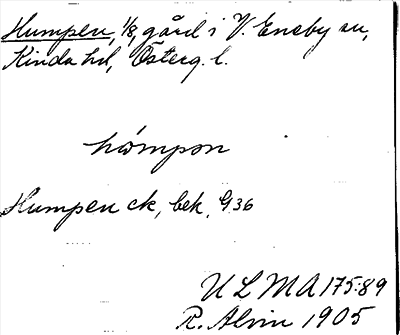 Humpen, 1/8, gård i V. Eneby sn,
Kinda hd, Österg. l.
hómpən
Humpen ck, bek. G36
U L M A 175:89
R. Alvin 1905